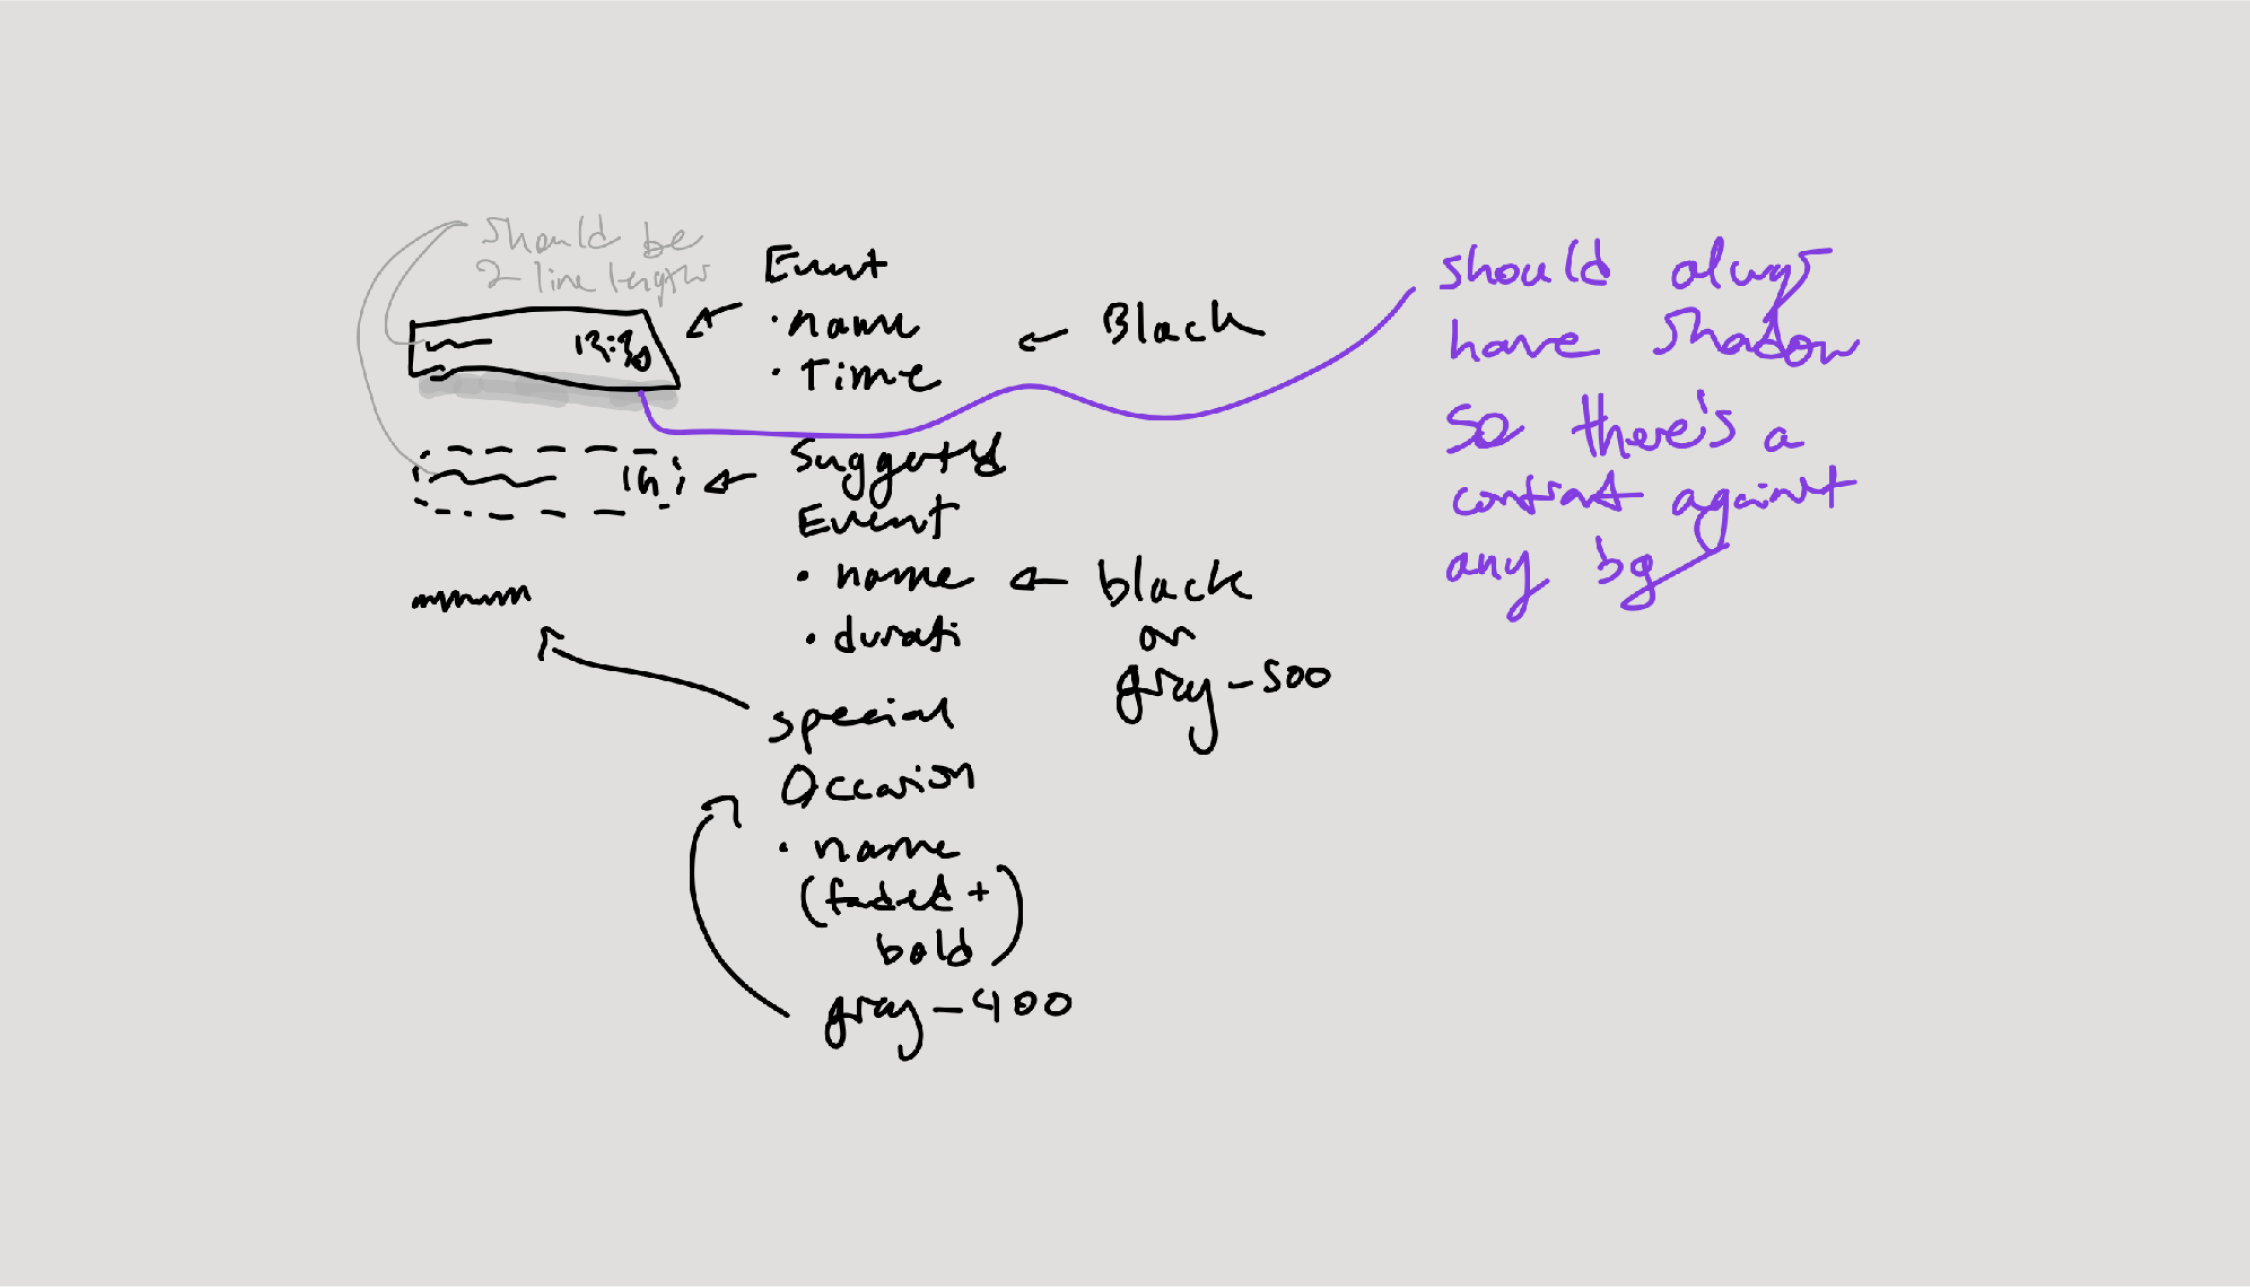 should be
2 line lengths
12:30
Event
• name
• Time
← Black
1h
Suggested
Event
• name ← black
• durati or
gray-500
special
Occasion
• name
(faded +
bold)
gray-400
should always
have shadow
so there's a
contrast against
any bg